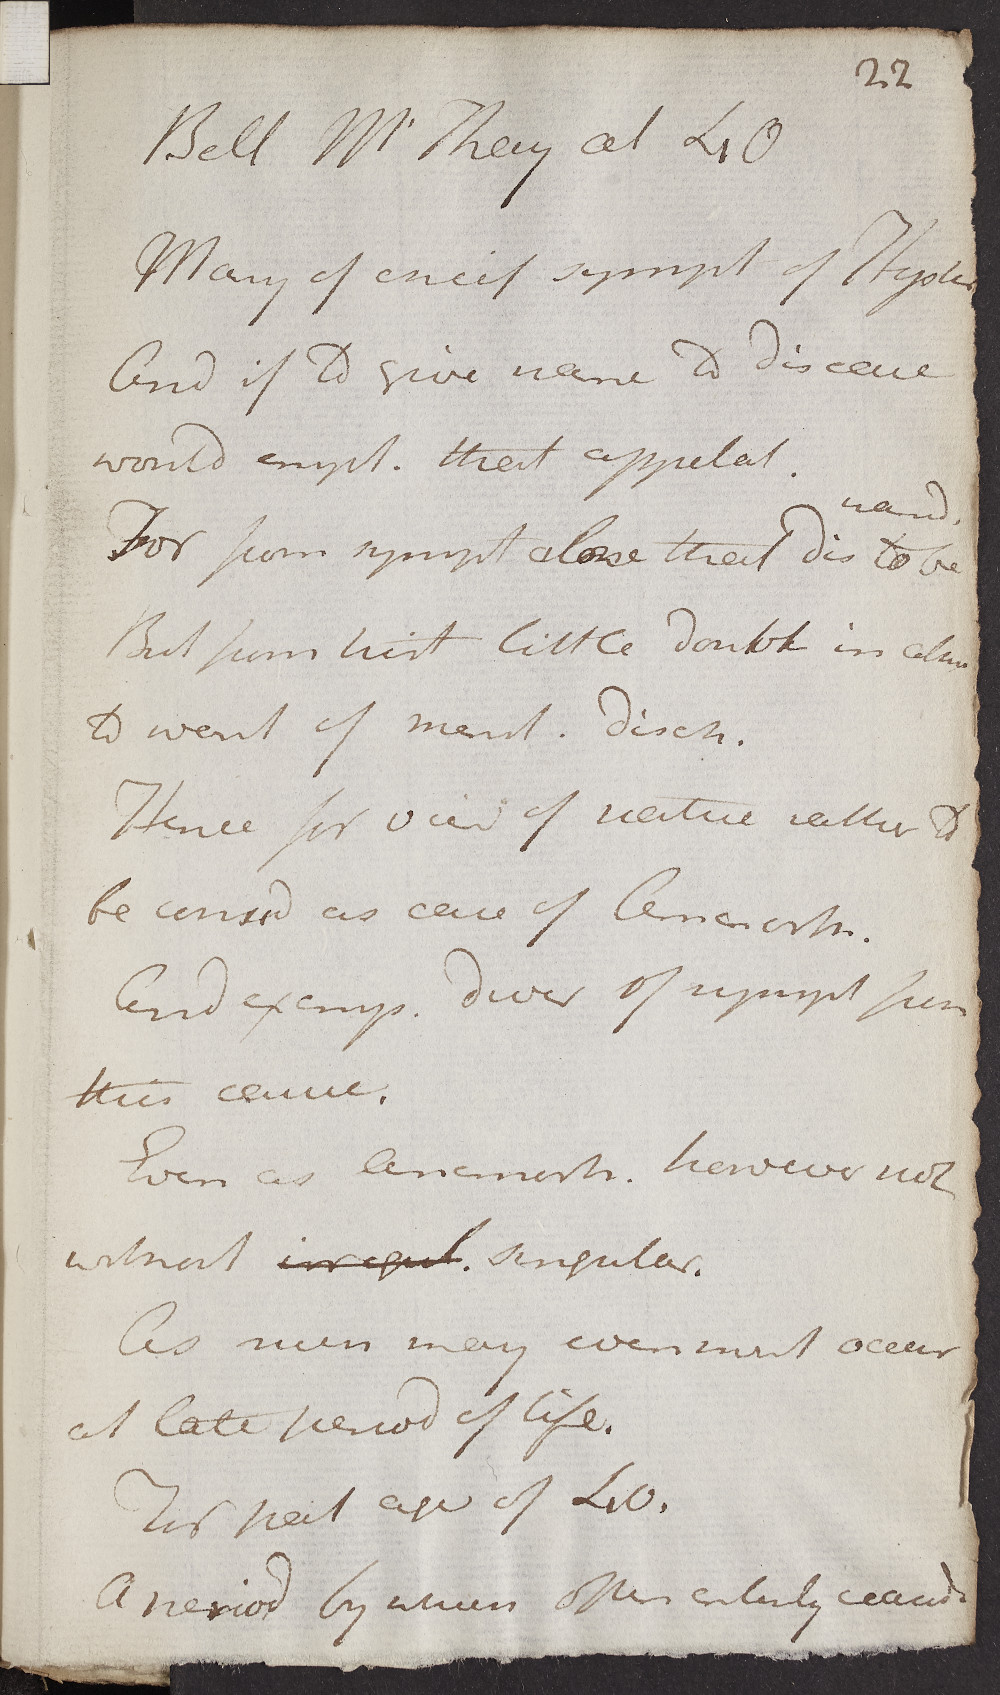 22
Bell McThey aet 40
Many of chief sympt of Hyster
And if to give name to disease
would empl. that appelat.
nand.
For from sympt alone that dis to be
But from hist little doubt in alm
to want of menst. disch.
Hence for view of nature rather to
be consid as case of Amenorh.
And exemp. diver of sympt from
this cause.
Even as Amenorh. however not
without irregul. singular.
As now may even most occur
at late period of life.
For pat age of 40.
A period by when often entirely